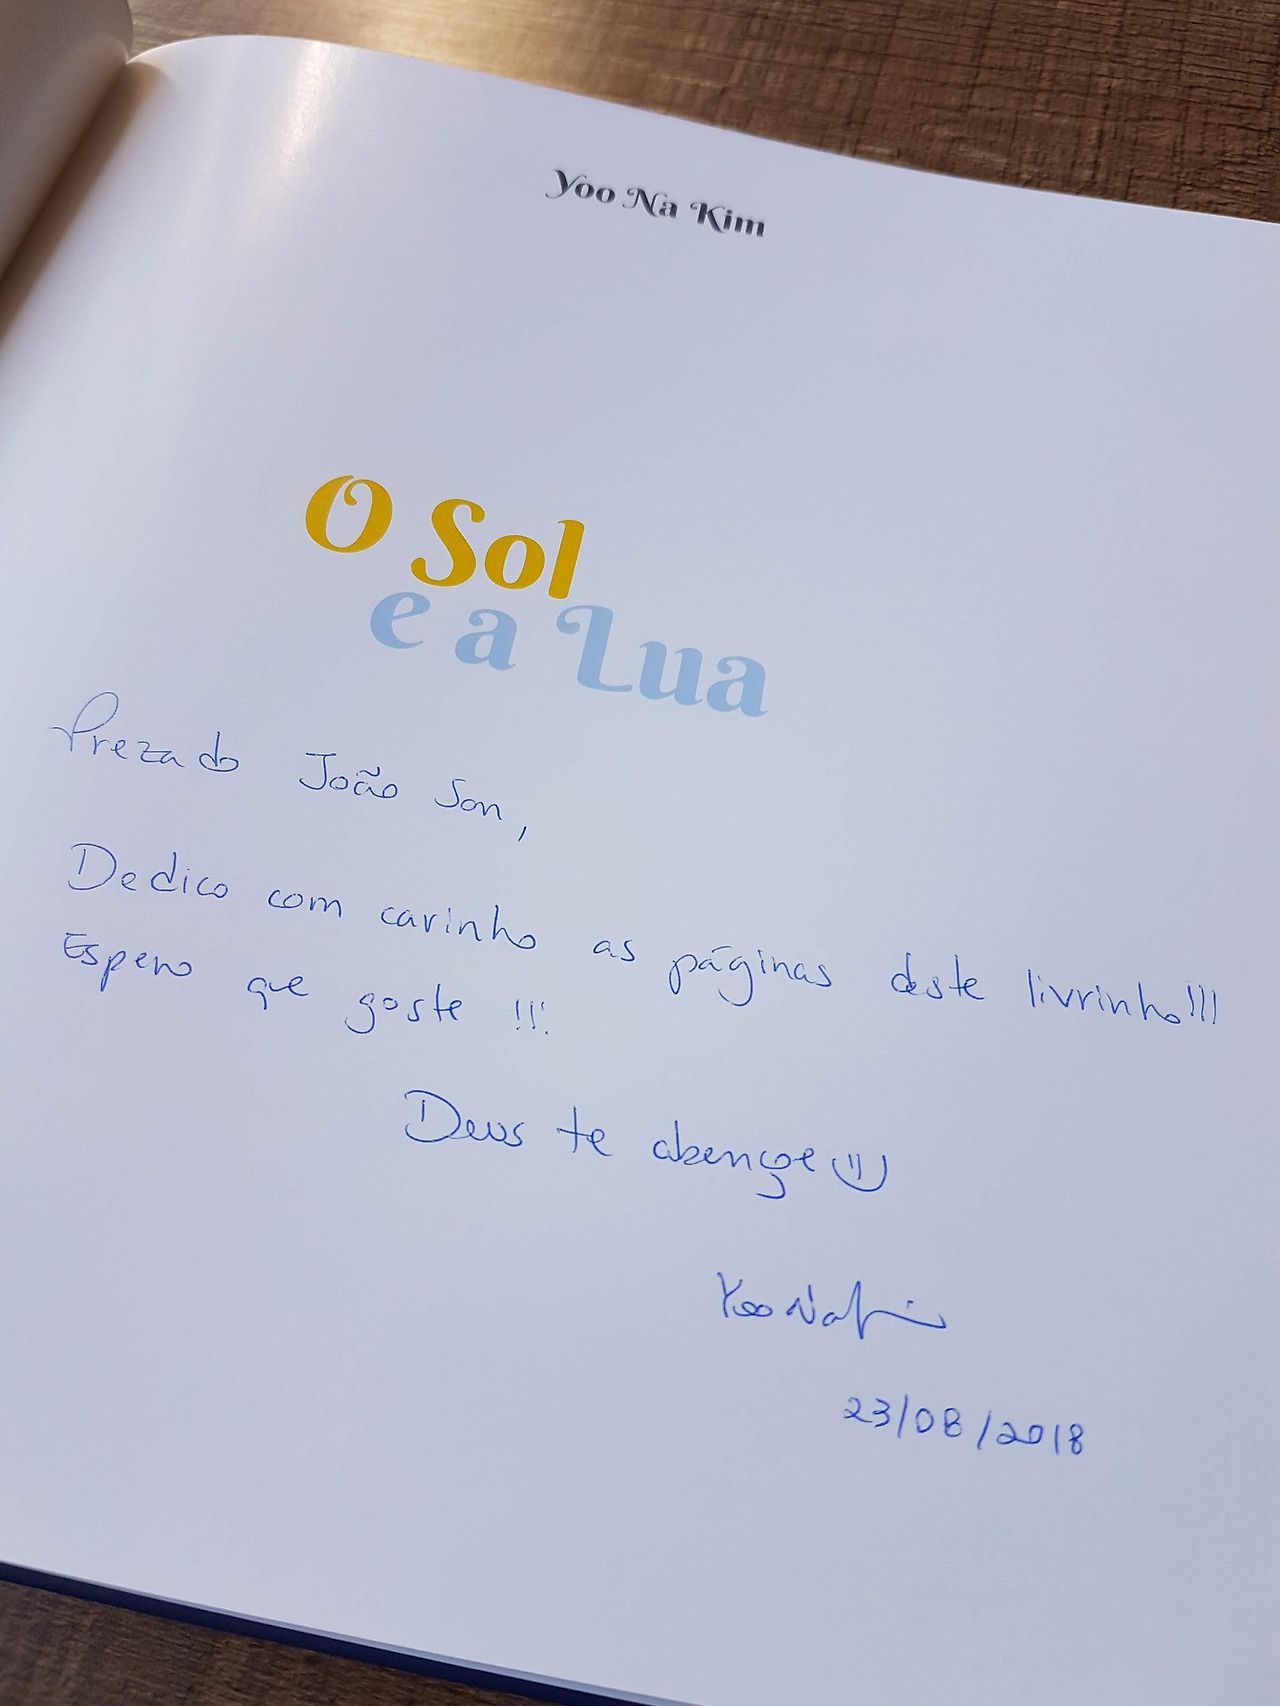 Yoo Na Kim
O Sol
e a Lua
Prezado João Son,
Dedico com carinho as páginas deste livrinho!!!
Espero que goste !!!
Deus te abençoe
Yoo Na Kim
23/08/2018